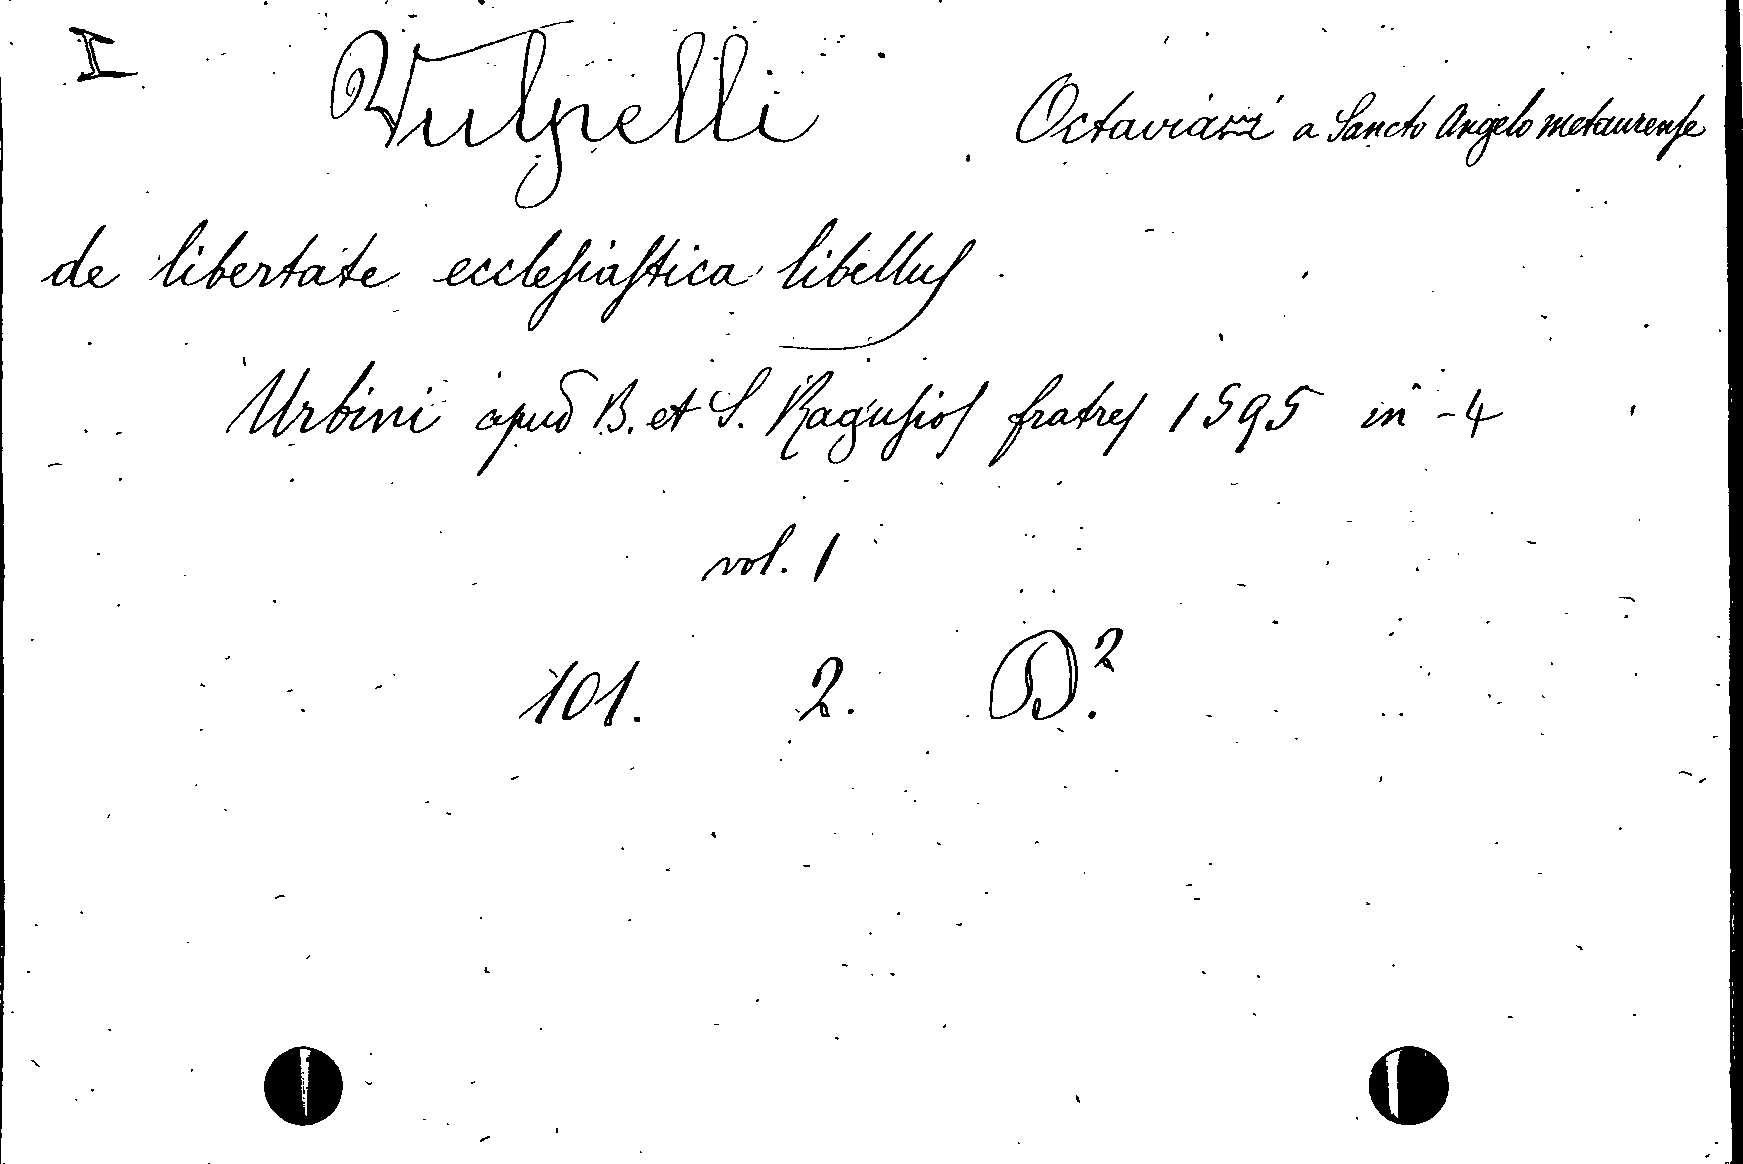 I Vulpelli Octaviani a Sancto Angelo metaurense
de libertate ecclesiastica libellus
Urbini apud B. et S. Ragusios fratres 1595 in -4
vol. 1
101. 2. D.²